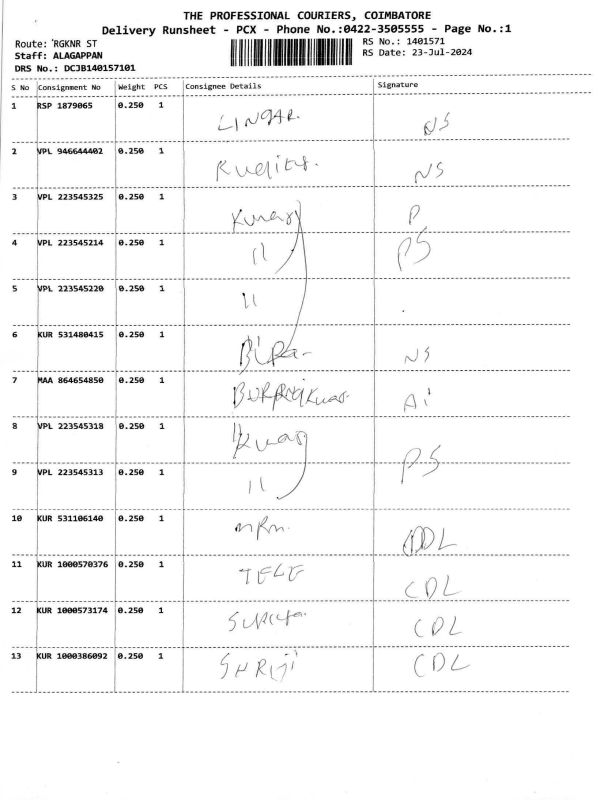 THE PROFESSIONAL COURIERS, COIMBATORE
Delivery Runsheet - PCX - Phone No.:0422-3505555 - Page No.:1
Route: RGKNR ST
RS No.: 1401571
Staff: ALAGAPPAN
RS Date: 23-Jul-2024
DRS No.: DCJB140157101
S No Consignment No Weight PCS Consignee Details Signature
1 RSP 1879065 0.250 1 LINGAR NS
2 VPL 946644402 0.250 1 NS
3 VPL 223545325 0.250 1 Kumar P
4 VPL 223545214 0.250 1 11 PS
5 VPL 223545220 0.250 1 11
6 KUR 531480415 0.250 1 NS
7 MAA 864654850 0.250 1 Ai
8 VPL 223545318 0.250 1 Kumar
9 VPL 223545313 0.250 1 11 PS
10 KUR 531106140 0.250 1 CDL
11 KUR 1000570376 0.250 1 TELE CDL
12 KUR 1000573174 0.250 1 CDL
13 KUR 1000386092 0.250 1 SHRIJI CDL